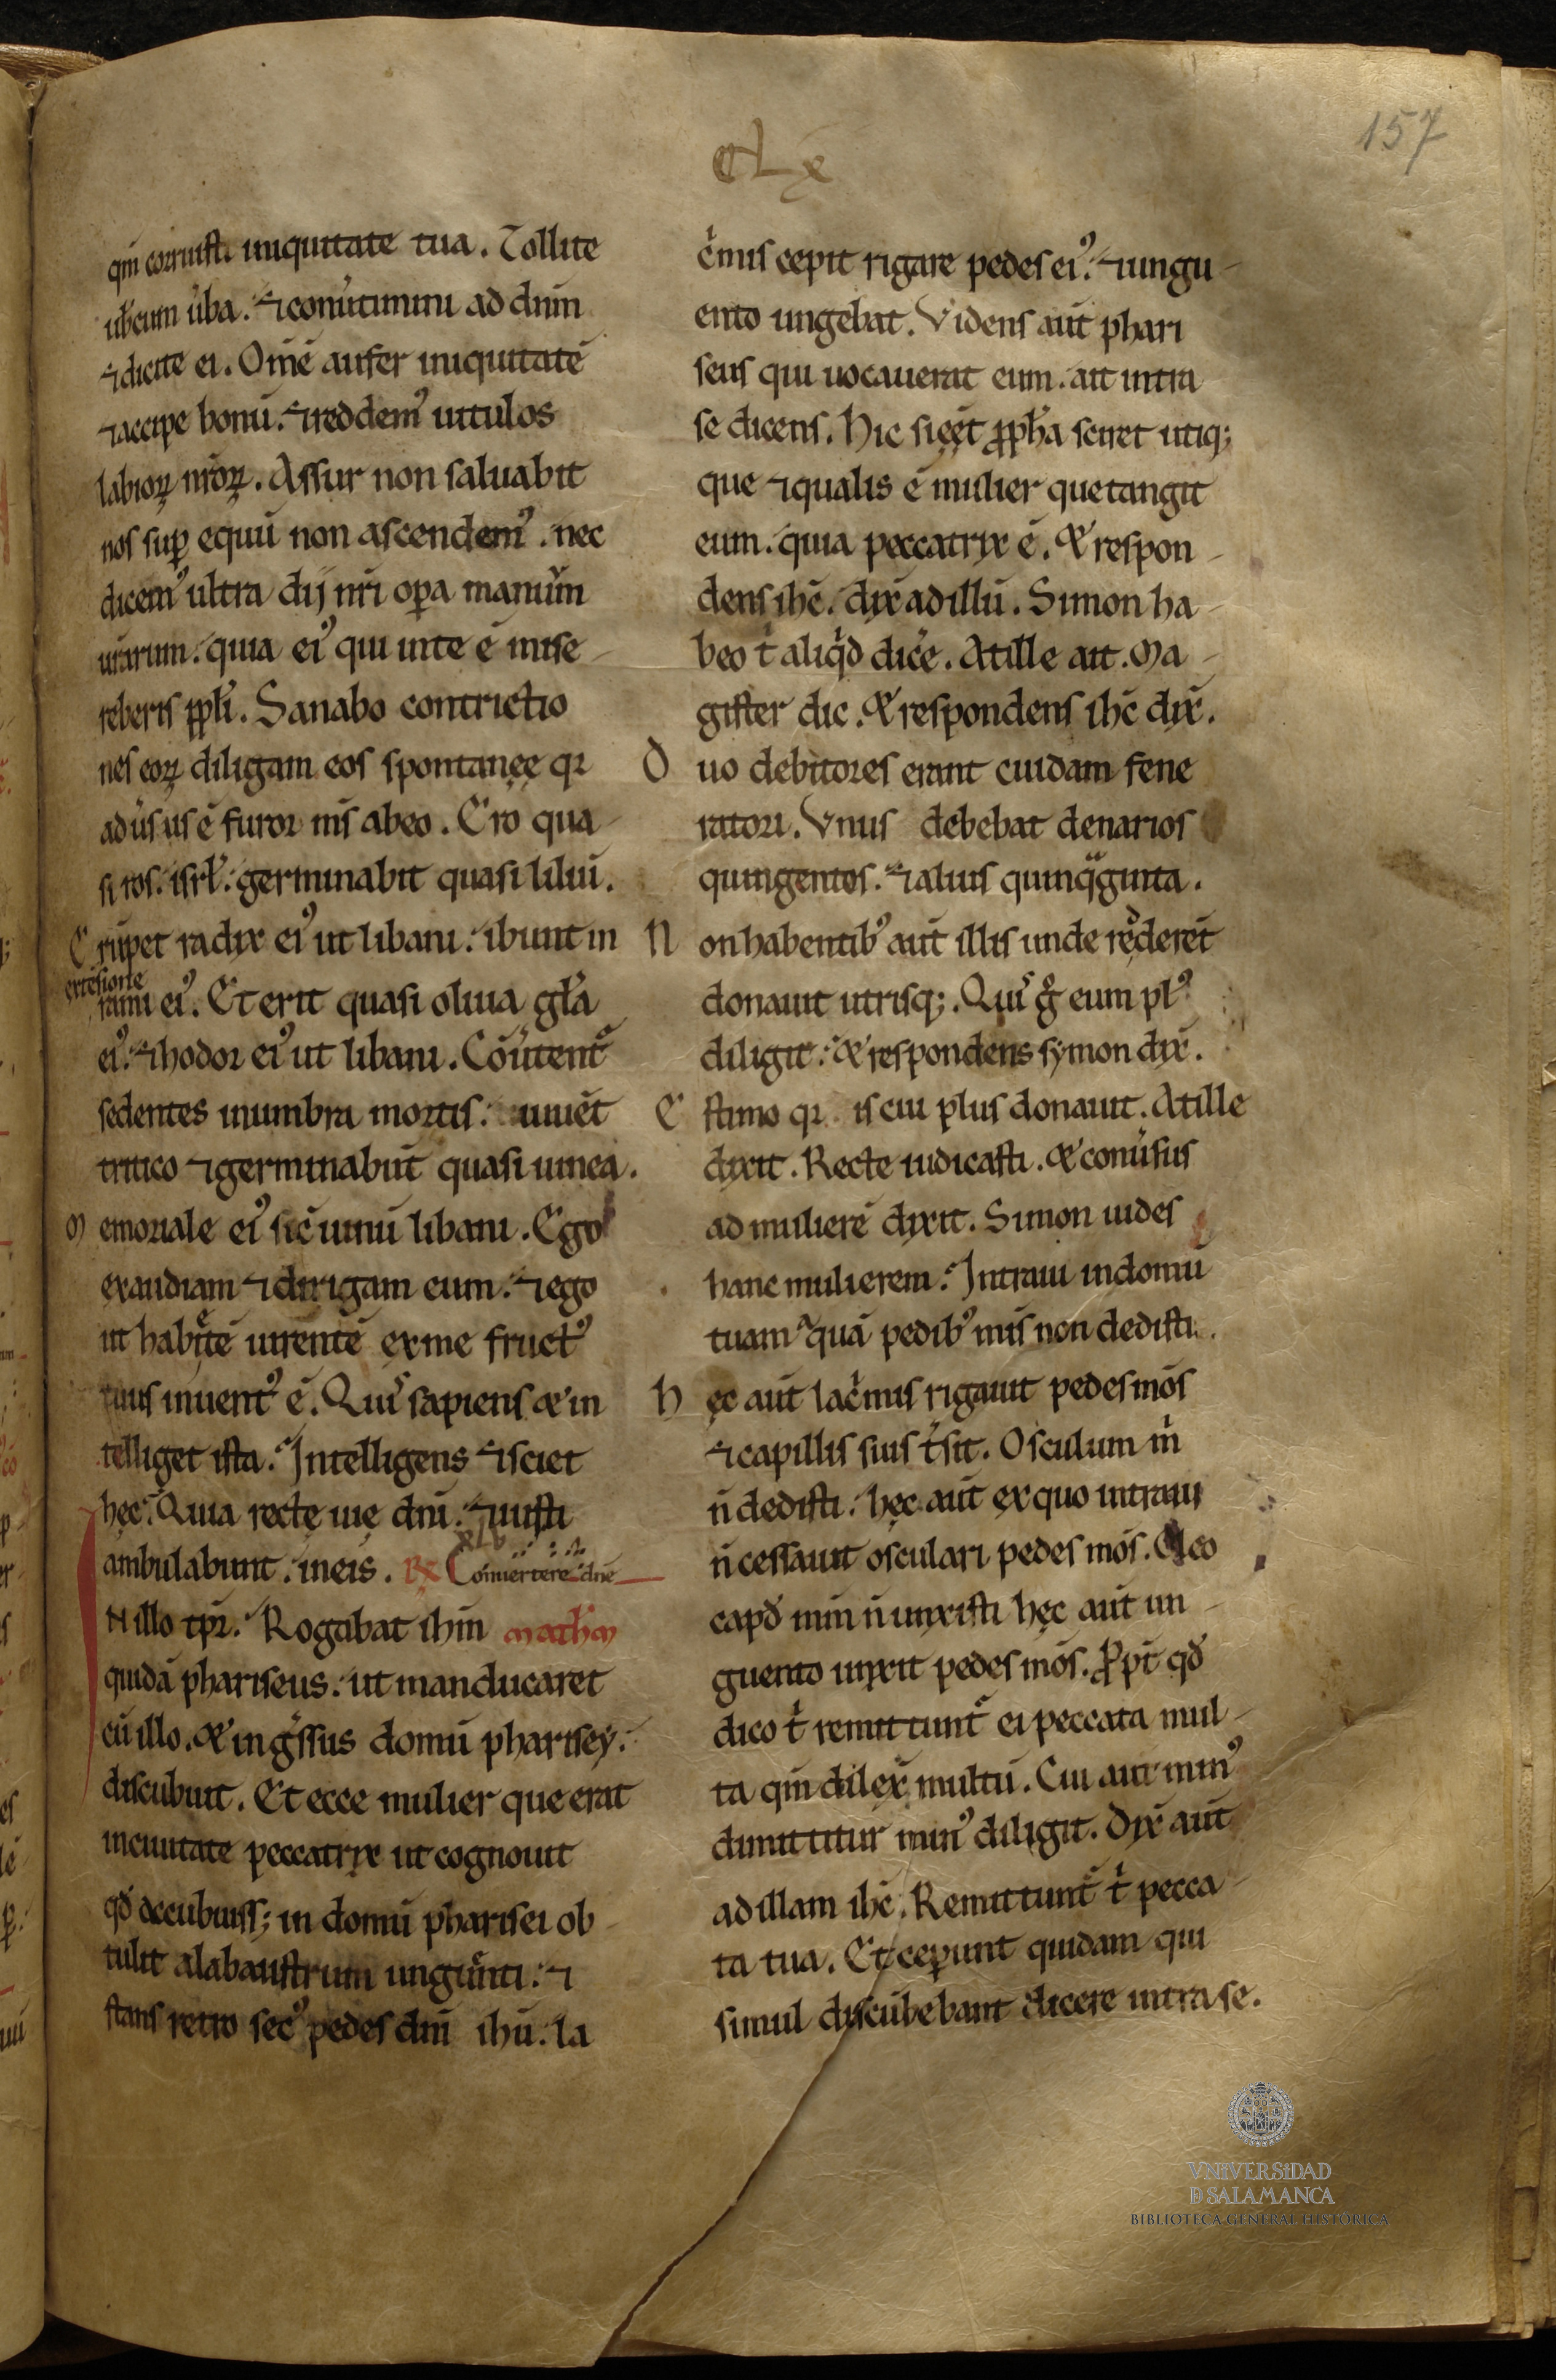 157
CLX
qm̄ corruisti iniquitate tua. Tollite
uƀcum ūba. ⁊ conūtimini ad dnm̄
⁊ dicite ei. Om̄e aufer iniquitatē
⁊ accipe bonū. ⁊ reddem᷒ uitulos
labioꝝ nr̄oꝝ. Assur non saluabit
nos suꝑ equū non ascendem᷒. nec
dicem᷒ ultra dij nr̄i oꝑa manuū
nr̄arum. quia ei᷒ qui inte ē mise-
reberis ppłi. Sanabo contrictio
nes eoꝝ diligam eos spontanęe qꝛ
adūsus ē furor m̄s abeo. Ero qua-
si ros. isrł. germinabit quasi liliū.
Erūpet radix ei᷒ ut libani. ibunt in
extēsione
rami ei᷒. Et erit quasi oliua głia
ei᷒. ⁊ hodor ei᷒ ut libani. Cōūtent᷑
sedentes inumbra mortis. uiuēt
tritico ⁊ germinabūt quasi uinea.
Memoriale ei᷒ sic̄ uinū libani. Ego
exaudiam ⁊ dirigam eum. ⁊ ego
ut habiētē uirentē exme fruct᷒
tuus inuent᷒ ē. Quis sapiens & in
telliget ista. Intelligens ⁊ sciet
hęc. Quia rectę uię dni. ⁊ iusti
XLV
ambulabunt. ineis. R̷ Conuertere dn̄e
IN illo tp̄r. Rogabat ihm̄ mathm
quidā phariseus. ut manducaret
cū illo. & ingr̄ssus domū pharisey.
discubuit. Et ecce mulier que erat
inciuitate peccatrix ut cognouit
qđ accubuiss; in domū pharisei ob-
tulit alabaustrum unguēnti. ⁊
stans retro sec᷒ pedes dni ihū. la
c̄mis cepit rigare pedes ei᷒. ⁊ ungu-
ento ungebat. Videns aūt phari
seus qui uocauerat eum. ait intra
se dicens. Hic si ęēt ꝓpħa sciret utiq;
que ⁊ qualis ē mulier quetangit
eum. quia peccatrix ē. & respon-
dens ihc̄. dix̄ adillū. Simon ha-
beo t̄ aliq̄d dic̄e. Atille ait. Ma-
gister dic. & respondens ihc̄ dix̄.
Duo debitores erant cuidam fene
ratori. Vnus debebat denarios
quingentos. ⁊ alius quinqᵃginta.
Non habentib᷒ aūt illis unde redderēt
donauit utrisq;. Quis g̊ eum pl᷒
diligit. & respondens symon dix̄.
Estimo qꝛ is cui plus donauit. Atille
dixit. Recte iudicasti. & conūsus
ad mulierē dixit. Simon uides
hanc mulierem. Intraui indomū
tuam aquā pedib᷒ m̄is non dedisti.
Hęc aūt lac̄mis rigauit pedes mōs
⁊ capillis suis t̄sit. Osculum m̄
n̄ dedisti. hęc aūt exquo intraui
n̄ cessauit osculari pedes mōs. Oleo
capđ mm̄ n̄ unxisti hęc aūt un-
guento unxit pedes mōs. Ꝓpt̄ qđ
dico t̄ remittunt᷑ ei peccata mul-
ta qm̄ dilex̄ multū. Cui aūt min᷒
dimittitur min᷒ diligit. Dix̄ aūt
adillam ihc̄. Remittunt᷑ t̄ pecca-
ta tua. Et ceperunt quidam qui
simul discūbebant dicere intra se.
VNIVERSIDAD
D SALAMANCA
BIBLIOTECA GENERAL HISTÓRICA